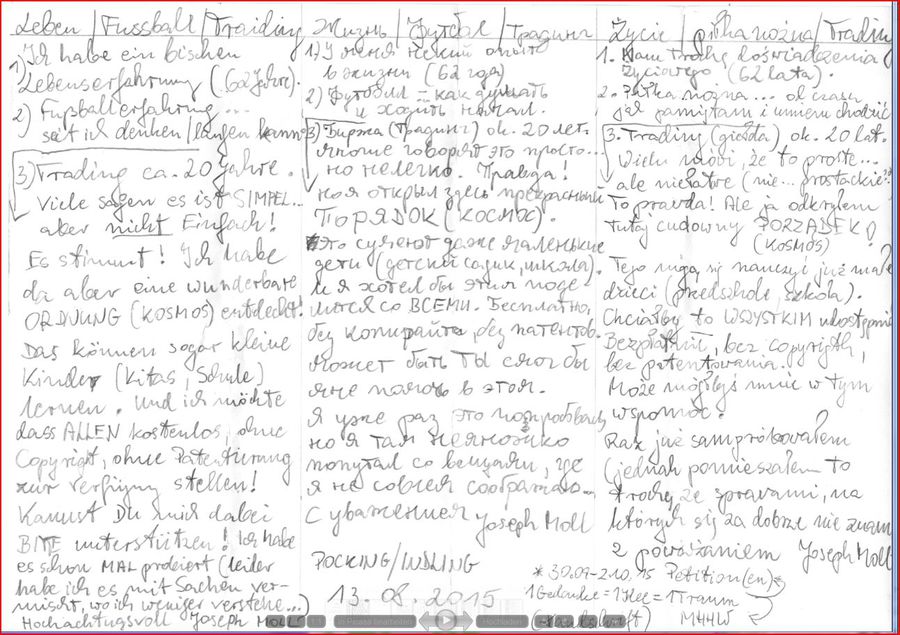 Leben / Fussball / Traiding
1) Ich habe ein bischen
Lebenserfahrung (62 Jahre).
2) Fußballerfahrung...
seit ich denken / laufen kann
3) Trading ca. 20 Jahre.
Viele sagen es ist SIMPEL...
aber nicht Einfach!
Es stimmt! Ich habe
da aber eine wunderbare
ORDNUNG (KOSMOS) entdeckt!
Das können sogar kleine
Kinder (Kitas, Schule)
lernen. Und ich möchte
dass ALLEN kostenlos, ohne
Copyright, ohne Patentierung
zur Verfügung stellen!
Kannst Du mich dabei
BITE unterstützen! Ich habe
es schon MAL probiert (leider
habe ich es mit Sachen ver-
mischt, wo ich weniger verstehe...)
Hochachtungsvoll Joseph Moll
Жизнь / Футбол / Традинг
1) У меня некий опыт
в жизни (62 года)
2) Футбол – как думать
и ходить начал.
3) Биржа (Традинг) ок. 20 лет.
Многие говорят это просто...
но нелегко. Правда!
но я открыл здесь прекрасный
ПОРЯДОК (КОСМОС).
Это сумеют даже маленькие
дети (детский садик, школа).
И я хотел бы этим поде-
лится со ВСЕМИ. Бесплатно,
без копирайта, без патентов.
Может быть ТЫ смог бы
мне помочь в этом.
Я уже раз это попробовал
но я там немножко
попутал со вещами, где
я не совсем соображаю...
С уважением Joseph Moll
POCKING / INDLING
13.08.2015
Życie / piłka nożna / Trading
1. Mam trochę doświadczenia
życiowego (62 lata).
2. Piłka nożna... od czasu
jak pamiętam i umiem chodzić
3. Trading (giełda) ok. 20 lat.
Wielu mówi, że to proste...
ale niełatwe (nie... prostackie?)
To prawda! Ale ja odkryłem
tutaj cudowny PORZĄDEK!
(KOSMOS)
Tego mogą się nauczyć już małe
dzieci (przedszkole, szkoła).
Chciałby to WSZYSTKIM udostępnić
Bezpłatnie, bez copyrigth,
bez patentowania.
Może mógłbyś mnie w tym
wspomóc?
Raz już sam próbowałem
(jednak pomieszałem to
trochę ze sprawami, na
których się za dobrze nie znam
z poważaniem Joseph Moll
* 30.09-2.10.15 Petition(en)
1 Gedanke = 1 Idee = 1 Traum
(Handschrift) M4HW
in Picasa bearbeiten
Hochladen